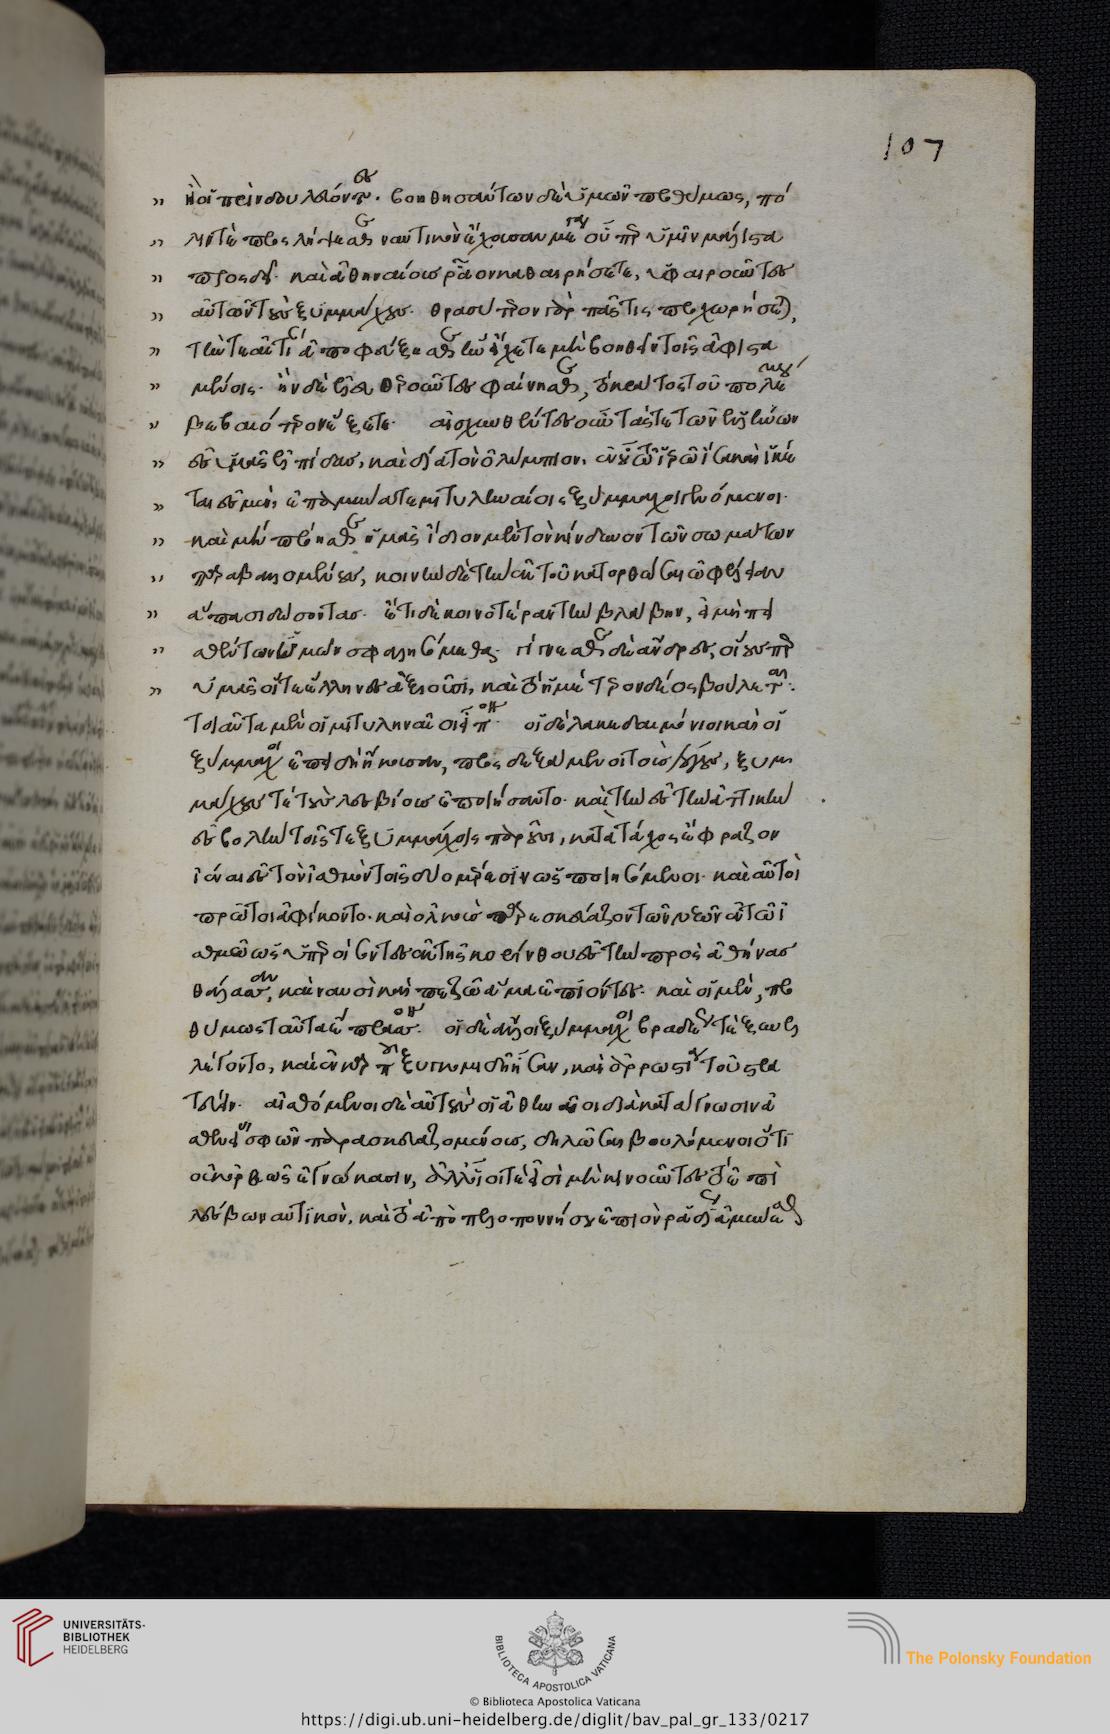 107
ἢ οἱ πρὶν δουλεύοντες. βοηθησάντων δὲ ὑμῶν προθύμως, πό
λιν τὲ προσλήψεσθε ναυτικὸν ἔχουσαν μέγα οὗπερ ὑμῖν μάλιστα
προσδεῖ. καὶ ἀθηναίους ῥᾷον καθαιρήσετε, ὑφαιροῦντες
αὐτῶν τοὺς ξυμμάχους. θρασύτερον γὰρ πᾶς τις προσχωρήσεται,
τήν τε αἰτίαν ἀποφεύξεσθε ἣν εἴχετε μὴ βοηθεῖν τοῖς ἀφιστα
μένοις. ἢν δὲ ἐλευθεροῦντες φαίνησθε, τὸ κράτος τοῦ πολέμου
βεβαιότερον ἕξετε. αἰσχυνθέντες οὖν τάς τε τῶν ἑλλήνων
ἐς ὑμᾶς ἐλπίδας, καὶ δία τὸν ὀλύμπιον, ἐν οὗ τῷ ἱερῷ ἴσα καὶ ἱκέ
ται ἐσμὲν, ἐπαμύνατε μιτυληναίοις ξύμμαχοι γενόμενοι.
καὶ μὴ πρόησθε ἡμᾶς ἴδιον μὲν τὸν κίνδυνον τῶν σωμάτων
παραβαλλομένους, κοινὴν δὲ τὴν ἐκ τοῦ κατορθῶσαι ὠφέλειαν
ἅπασι δώσοντας. ἔτι δὲ κοινοτέραν τὴν βλάβην, εἰ μὴ πει
σθέντων ὑμῶν σφαλησόμεθα. γίγνεσθε δὲ ἄνδρες, οἵους περ
ὑμᾶς οἵ τε ἕλληνες ἀξιοῦσι, καὶ τὸ ἡμέτερον δέος βούλεται.
τοιαῦτα μὲν οἱ μιτυληναῖοι εἶπον. οἱ δὲ λακεδαιμόνιοι καὶ οἱ
ξύμμαχοι ἐπειδὴ ἤκουσαν, προσδεξάμενοι τοὺς λόγους, ξυμ
μάχους τὲ τοὺς λεσβίους ἐποιήσαντο. καὶ τὴν ἐς τὴν ἀττικὴν
ἐσβολὴν τοῖς τε ξυμμάχοις παροῦσι, κατὰ τάχος ἔφραζον
ἰέναι ἐς τὸν ἰσθμὸν τοῖς δυο μέρεσιν ὡς ποιησόμενοι. καὶ αὐτοὶ
πρῶτοι ἀφίκοντο. καὶ ὁλκοὺς παρεσκεύαζον τῶν νεῶν ἐν τῷ ἰ
σθμῷ ὡς ὑπεροίσοντες ἐκ τῆς κορίνθου ἐς τὴν πρὸς ἀθήνας
θάλασσαν, καὶ ναυσὶ καὶ πεζῷ ἅμα ἐπιόντες. καὶ οἱ μὲν, προ
θύμως ταῦτα ἔπρασσον. οἱ δὲ ἄλλοι ξύμμαχοι βραδέως τὲ ξυνε
λέγοντο, καὶ ἐν καρποῦ ξυγκομιδῇ ἦσαν, καὶ ἀρρωστίᾳ τοῦ στρα
τεύειν. αἰσθόμενοι δὲ αὐτοὺς οἱ ἀθηναῖοι διὰ κατάγνωσιν ἀ
σθενείας σφῶν παρασκευαζομένους, δηλῶσαι βουλόμενοι ὅτι
οὐκ ὀρθῶς ἐγνώκασιν, ἀλλ' οἷοί τέ εἰσὶ μὴ κινοῦντες τὸ ἐπὶ
λέσβῳ ναυτικὸν, καὶ τὸ ἀπὸ πελοποννήσου ἐπιὸν ῥᾳδίως ἀμύνεσθαι
UNIVERSITÄTS-
BIBLIOTHEK
HEIDELBERG
BIBLIOTECA APOSTOLICA VATICANA
The Polonsky Foundation
© Biblioteca Apostolica Vaticana
https://digi.ub.uni-heidelberg.de/diglit/bav_pal_gr_133/0217